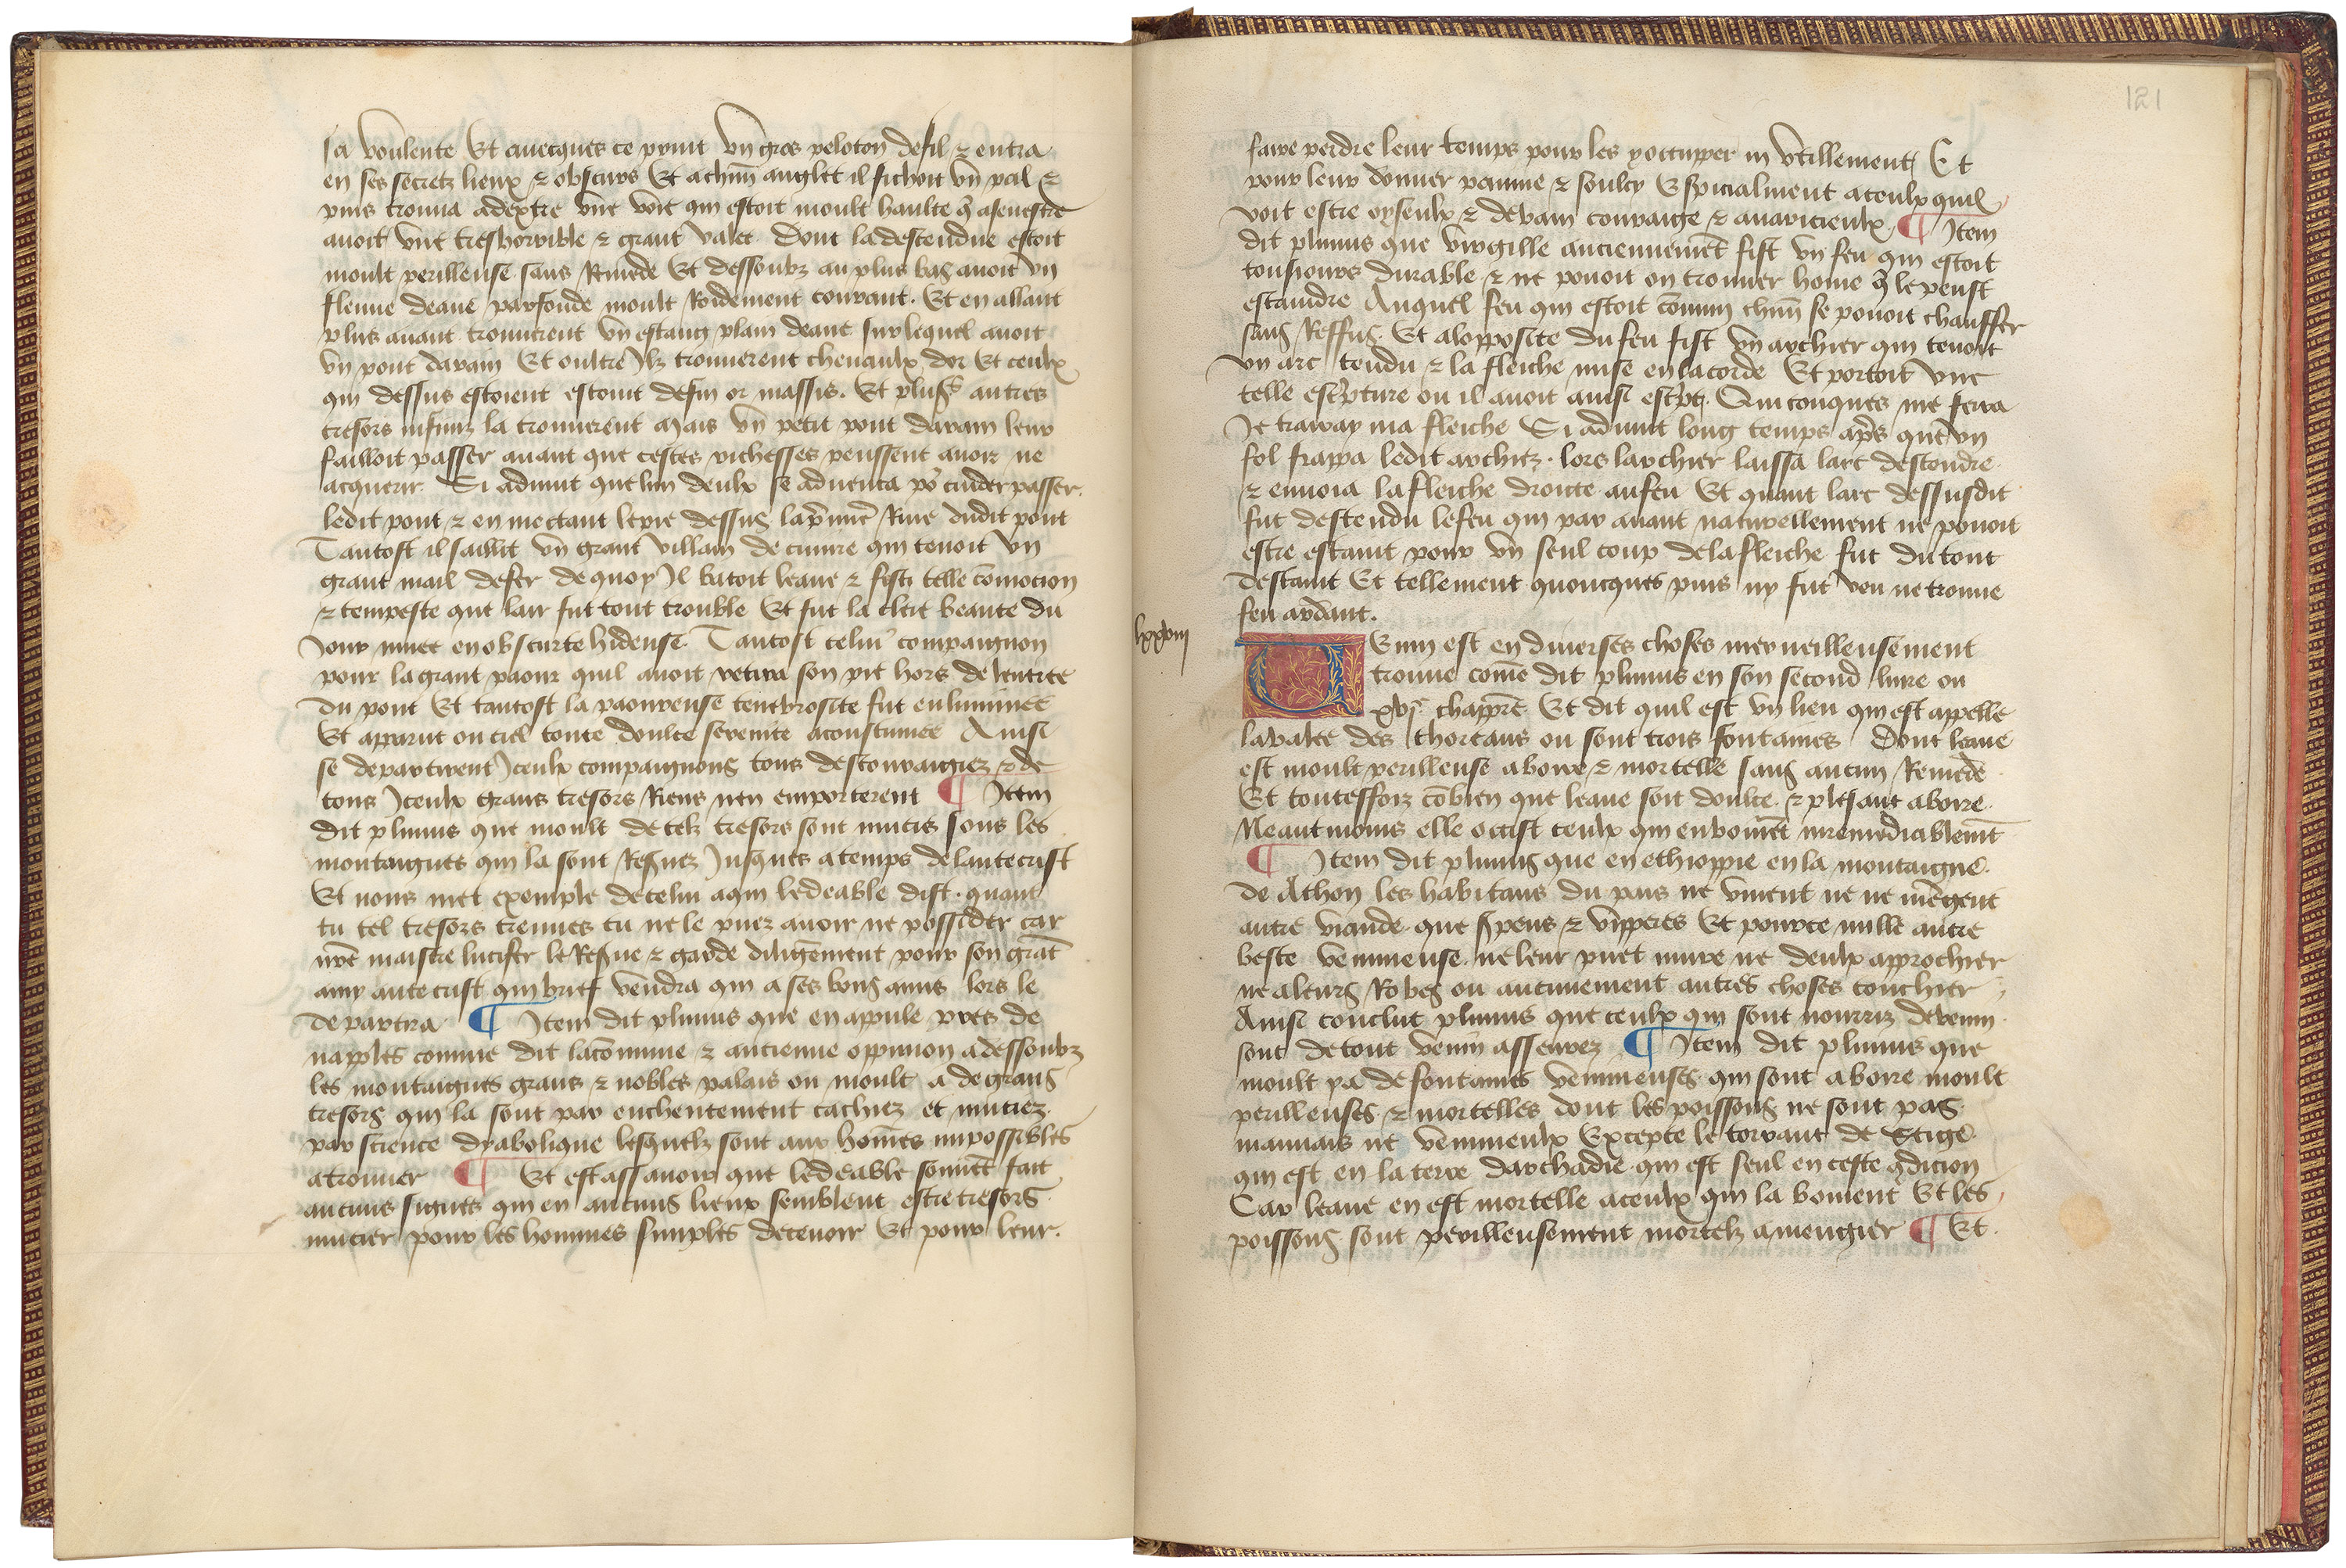 sa voulente Et avecques ce print vng gros peloton de fil ⁊ entra
en ses secretz lieux ⁊ obscurs Et a chūn anglet il fichoit vng pal ⁊
puis trouva a dextre vne voie qui estoit moult haulte ⁊ a senestre
avoit vne tres horrible ⁊ grant valee. Dont la descendue estoit
moult perilleuse sans Remede Et dessoubz au plus bas avoit vn
fleuve deaue parfonde moult Roidement courant. Et en allant
plus avant trouverent vng estang plain deaue sur lequel avoit
vn pont darain Et oultre Ilz trouverent chevaulx dor Et ceulx
qui dessus estoient estoient de fin or massis. Et plus⁹ autres
tresors infiniz la trouverent Mais vng petit pont darain leur
failloit passer avant que cestes richesses peussent avoir ne
acquerir. Si advint que lun deulx se adventa po² cuider passer
ledit pont ⁊ en mectant le pie dessus la p̄miē Rive dudit pont
Tantost il saillit vng grant villain de cuivre qui tenoit vn
grant mail de fer de quoy Il batoit leaue ⁊ fist telle cōmocion
⁊ tempeste que lair fut tout trouble Et fut la clere beaute du
Jour muee en obscurte hideuse. Tantost celui compaignon
pour la grant paour quil avoit retira son pie hors de lentree
du pont Et tantost la paoureuse tenebrosite fut enluminee
Et apparut ou ciel toute doulce serenite acoustumee Ainsi
se departirent Iceulx compaignons tous descouraigiez ⁊ de
tous Iceulx grans tresors Riens nen emporterent ¶ Item
dit plinius que moult de telz tresors sont muciés soubs les
montaignes qui la sont Reservez Jusques a temps de lantecrist
Et nous met exemple de celui a qui le deable dist. quant
tu tel tresors trennes tu ne le puez avoir ne posseder car
nr̄e maistre lucifer le Reserve ⁊ garde diligēment pour son grāt
amy antecrist qui brief vendra qui a ses bons amis lors le
departira ¶ Item dit plinius que en apule pres de
napples comme dit la cōmune ⁊ ancienne oppinion a dessoubz
les montaignes grans ⁊ nobles palais ou moult a de grans
tresors qui la sont par enchentement cachiez et muciez
par science dyabolique lesquelz sont aux hom̄es impossibles
a trouver ¶ Et est assavoir que le deable souvēt fait
aucuns signes qui en aucuns lieux semblent estre tresors
mucier pour les hommes simples decevoir Et pour leur
121
faire perdre leur temps pour les y occupper in vtillement Et
pour leur donner painne ⁊ soulcy Especialment a ceulx quil
voit estre oyseulx ⁊ de vain couraige ⁊ avaricieulx ¶ Item
dit plinius que virgille anciennemēt fist vn feu qui estoit
tousiours durable ⁊ ne povoit on trouver home q̄ le peust
estaindre Auquel feu qui estoit cōmun chūn se povoit chauffer
sans Reffus. Et a lopposite du feu fist vng archier qui tenoit
vn arc tendu ⁊ la fleiche mise en la corde Et portoit vne
telle esc̄pture ou il avoit ainsi esc̄pt. Quiconques me ferra
Je trairay ma fleiche Si advint long temps ap̄s que vn
fol frappa ledit archiez. lors larchier laissa larc destendre
⁊ envoia la fleiche droicte au feu Et quant larc dessusdit
fut destendu le feu qui par avant naturellement ne povoit
estre estaint pour vng seul coup de la fleiche fut du tout
destaint Et tellement quoncques puis ny fut veu ne trouve
feu ardant.
lxxviii
Venin est en diverses choses merveilleusement
trouve com̄e dit plinius en son second livre ou
xvje chapprē. Et dit quil est vng lieu qui est appelle
la valee des thoreaus ou sont trois fontaines Dont leaue
est moult perilleuse a boire ⁊ mortelle sans aucun Remede
Et toutesfoiz cōbien que leaue soit doulce ⁊ plesant a boire
Neantmoins elle occist ceulx qui en boivēt inremediablemēt
¶ Item dit plinius que en ethioppie en la montaigne
de Athon les habitans du pais ne vivent ne ne mēgent
autre viande que s̄pens ⁊ vipperes Et pource nulle autre
beste venimeuse ne leur puet nuire ne deulx approchier
ne a leurs Robes ou aucunement autres choses touchier
Ainsi conclut plinius que ceulx qui sont nourriz de venin
sont de tout venin asseurez ¶ Item dit plinius que
moult ya de fontaines venimeuses qui sont a boire moult
perilleuses ⁊ mortelles dont les poissons ne sont pas
mauvais ne venimeulx Excepte le torrant de Stige
qui est en la terre darchadie qui est seul en ceste ꝯdicion
Car leaue en est mortelle a ceulx qui la boivent Et les
poissons sont perilleusement mortelz a mengier ¶ Et